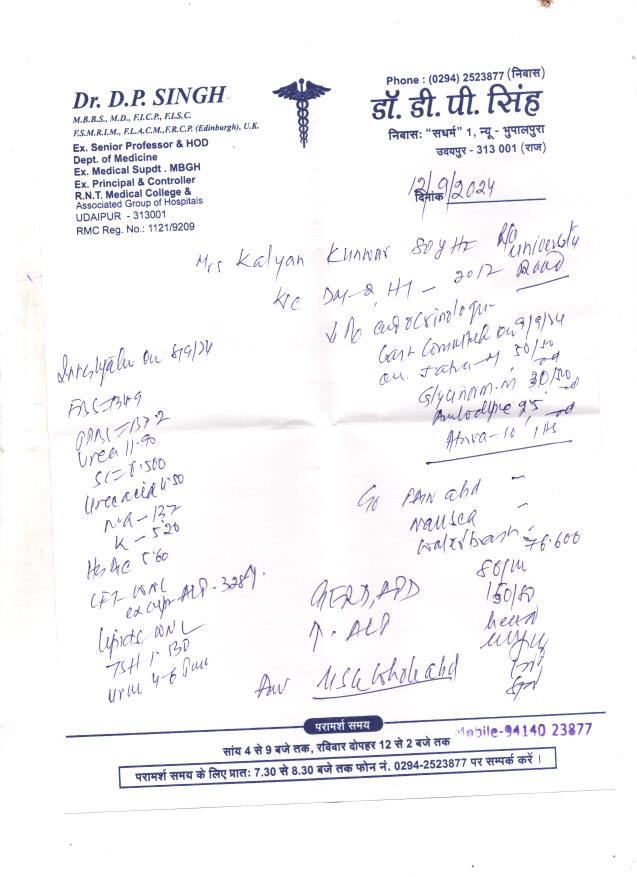 Dr. D.P. SINGH
M.B.B.S., M.D., F.I.C.P., F.I.S.C.
F.S.M.R.I.M., F.L.A.C.M.,F.R.C.P. (Edinburgh), U.K.
Ex. Senior Professor & HOD
Dept. of Medicine
Ex. Medical Supdt . MBGH
Ex. Principal & Controller
R.N.T. Medical College &
Associated Group of Hospitals
UDAIPUR - 313001
RMC Reg. No.: 1121/9209
Phone : (0294) 2523877 (निवास)
डॉ. डी. पी. सिंह
निवास: "सधर्म" 1, न्यू - भुपालपुरा
उदयपुर - 313 001 (राज)
दिनांक 12/9/2024
Mrs Kalyan Kunwar 80y R/o University Road
DM-2, HT - 2012
Last Consulted on 9/9/24
50/50 od
30/500 od
25 od
Atova-10, 1 HS
on 8/9/24
FBS = 134.9
PPBS = 137.2
Urea 11.90
SC = 0.500
Uric acid 4.50
Na - 137
K - 5.20
HbA1c 5.60
LFT WNL
except ALP - 328
Lipids WNL
TSH 1.130
C/o PAIN abd
Nausea
Waterbrash
76.600
80/m
150/80
GERD, APD
↑ ALP
Adv USG whole abd
परामर्श समय
सांय 4 से 9 बजे तक, रविवार दोपहर 12 से 2 बजे तक
Mobile-94140 23877
परामर्श समय के लिए प्रातः 7.30 से 8.30 बजे तक फोन नं. 0294-2523877 पर सम्पर्क करें ।